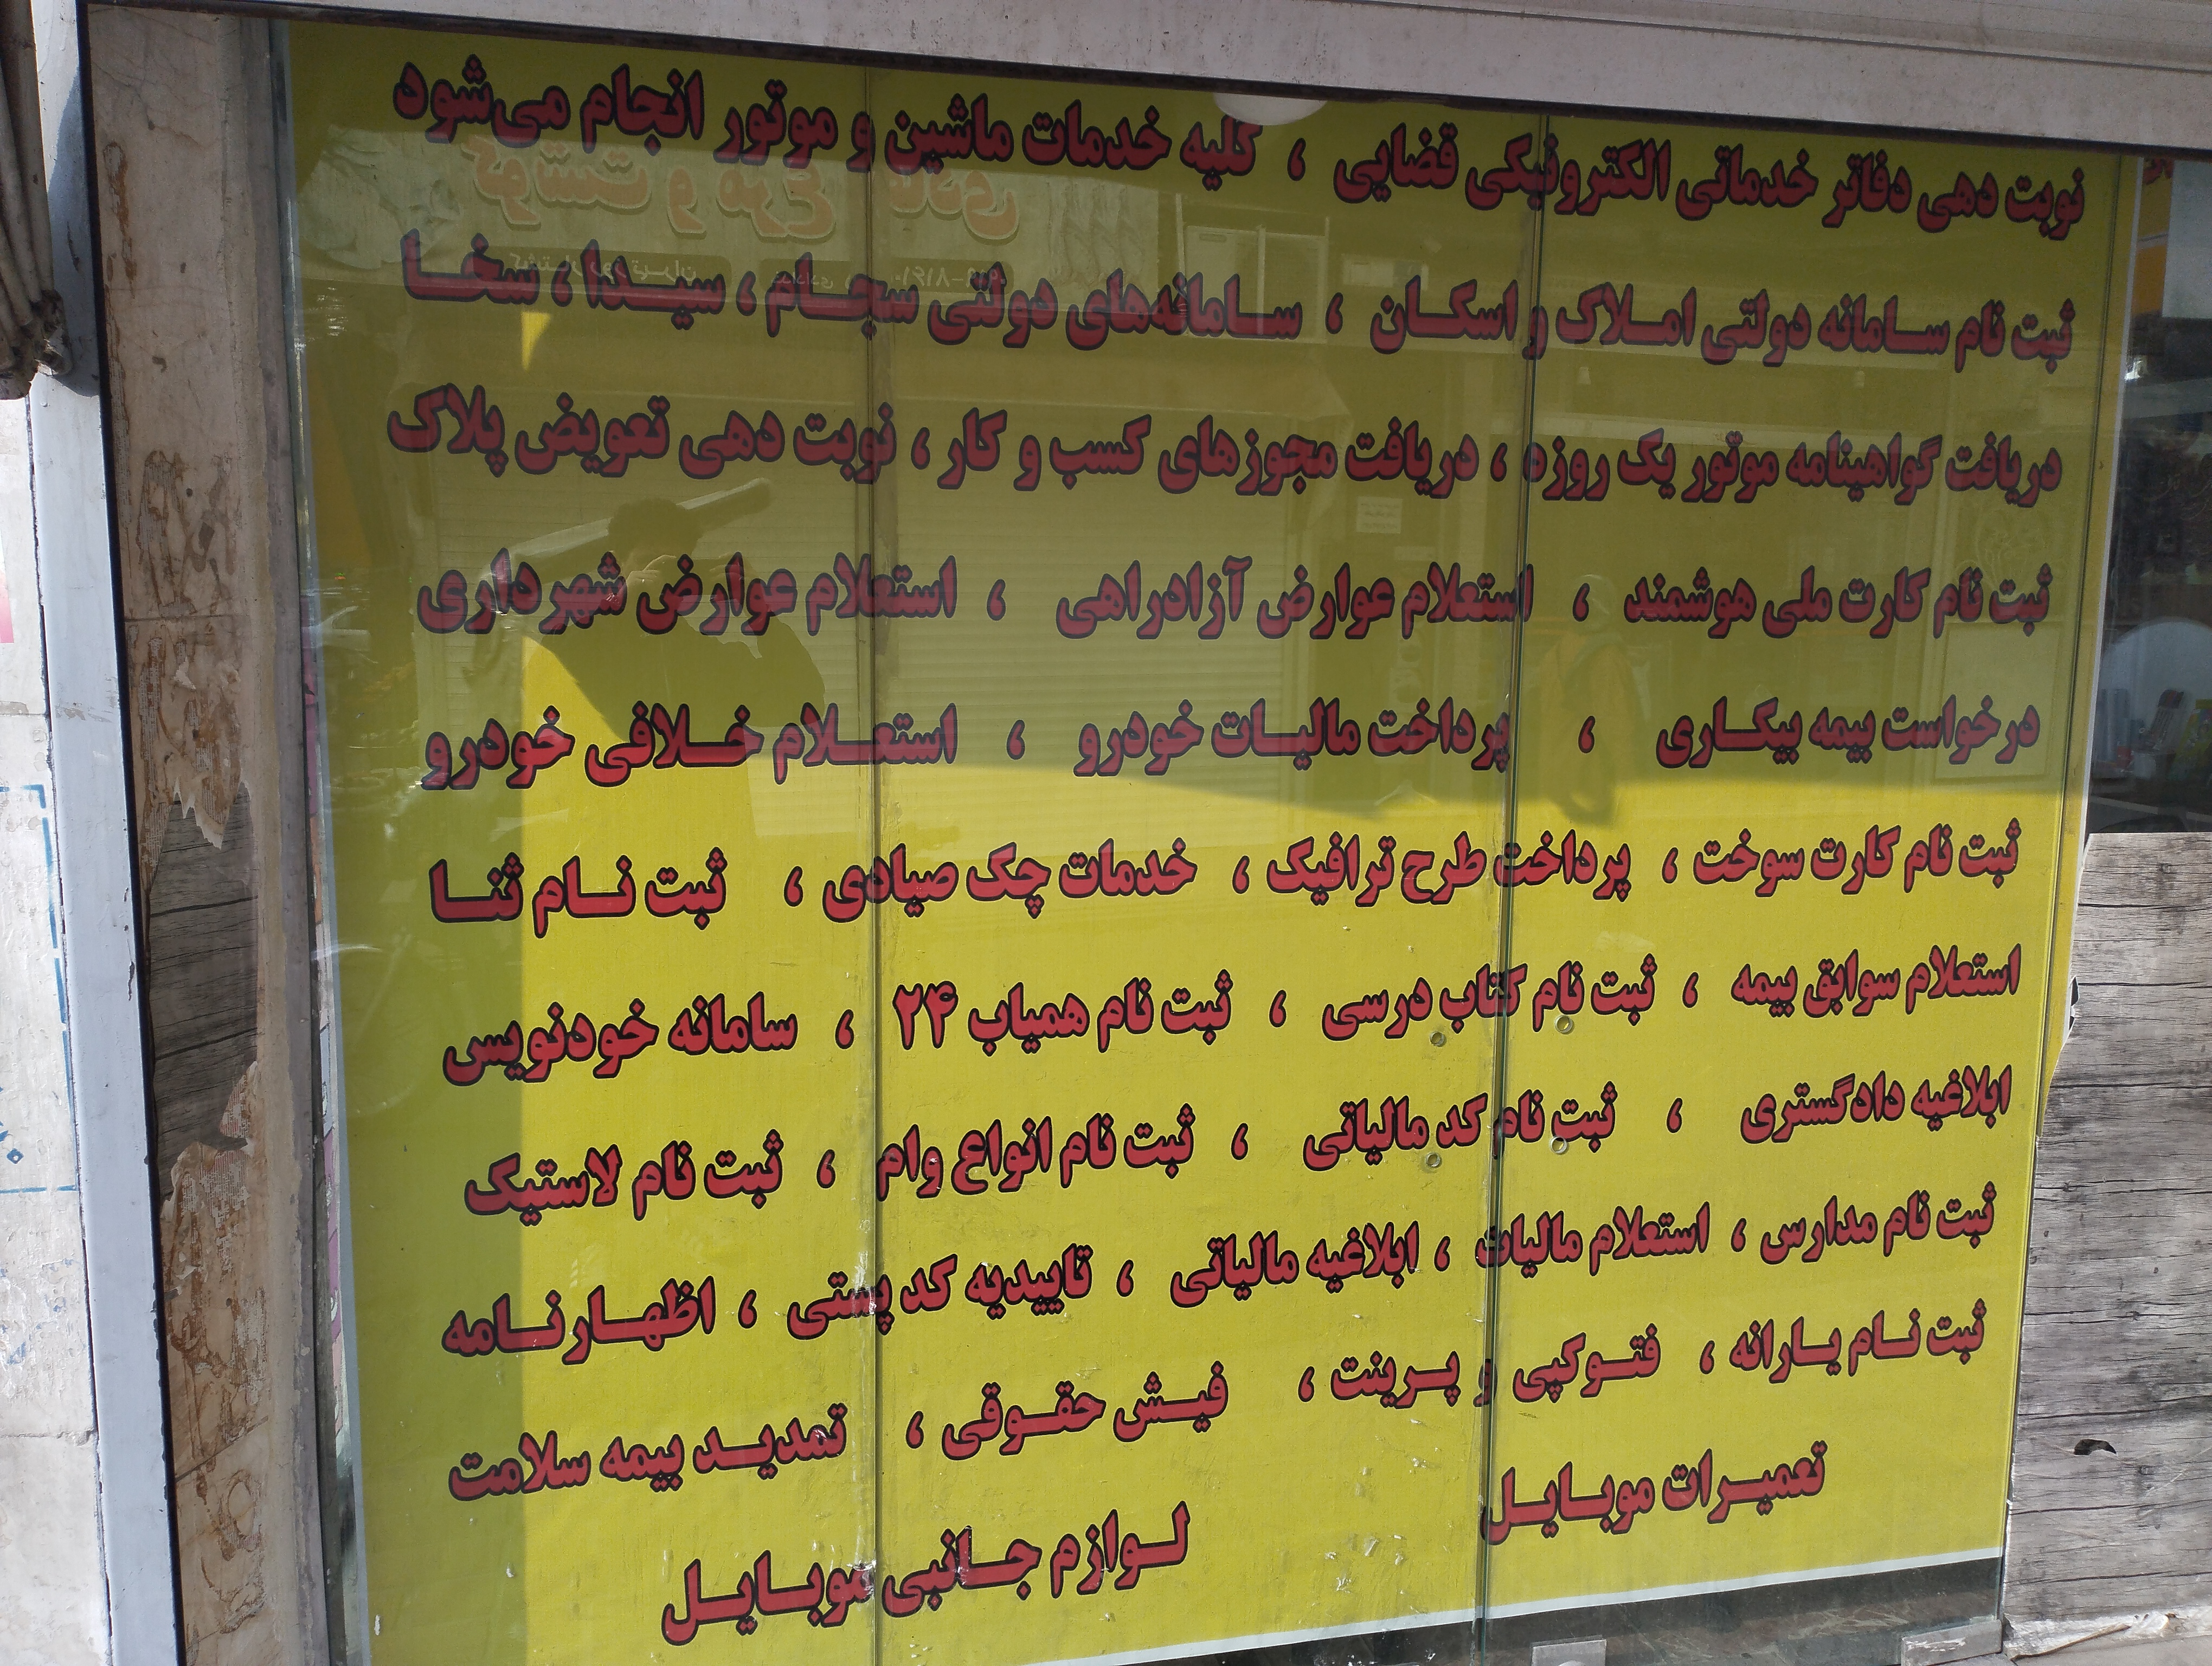 نوبت دهی دفاتر خدماتی الکترونیکی قضایی ، کلیه خدمات ماشین و موتور انجام می‌شود
ثبت نام سامانه دولتی املاک و اسکان ، سامانه‌های دولتی سجام ، سیدا ، سخا
دریافت گواهینامه موتور یک روزه ، دریافت مجوزهای کسب و کار ، نوبت دهی تعویض پلاک
ثبت نام کارت ملی هوشمند ، استعلام عوارض آزادراهی ، استعلام عوارض شهرداری
درخواست بیمه بیکاری ، پرداخت مالیات خودرو ، استعلام خلافی خودرو
ثبت نام کارت سوخت ، پرداخت طرح ترافیک ، خدمات چک صیادی ، ثبت نام ثنا
استعلام سوابق بیمه ، ثبت نام کتاب درسی ، ثبت نام همیاب ۲۴ ، سامانه خودنویس
ابلاغیه دادگستری ، ثبت نام کد مالیاتی ، ثبت نام انواع وام ، ثبت نام لاستیک
ثبت نام مدارس ، استعلام مالیات ، ابلاغیه مالیاتی ، تاییدیه کد پستی ، اظهارنامه
ثبت نام یارانه ، فتوکپی و پرینت ، فیش حقوقی ، تمدید بیمه سلامت
تعمیرات موبایل لوازم جانبی موبایل
گوشت و مرغ